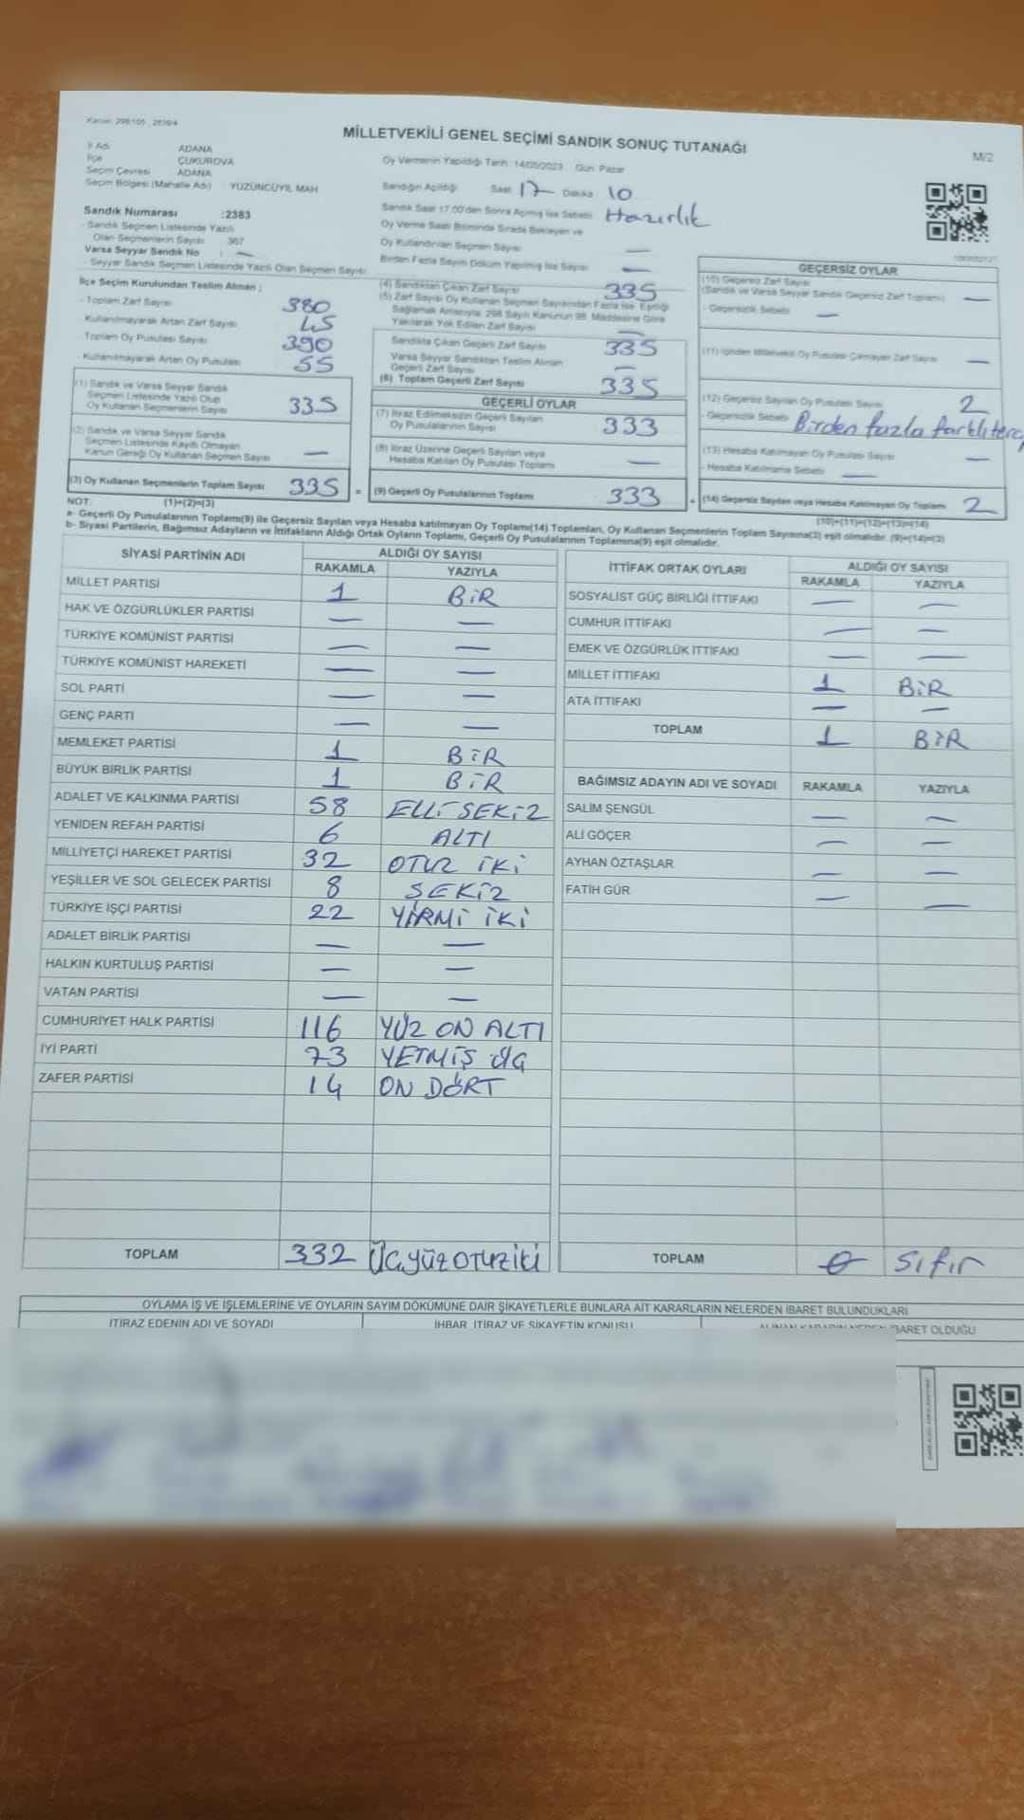 MİLLETVEKİLİ GENEL SEÇİMİ SANDIK SONUÇ TUTANAĞI
M/2
İl Adı ADANA
İlçe ÇUKUROVA
Seçim Çevresi ADANA
Seçim Bölgesi (Mahalle Adı) YÜZÜNCÜYIL MAH
Oy Vermenin Yapıldığı Tarih :14/05/2023 Gün: Pazar
Sandığın Açıldığı Saat 17 Dakika 10
Sandık Saat 17.00'den Sonra Açılmış İse Sebebi Hazırlık
Oy Verme Saati Bitiminde Sırada Bekleyen ve
Oy Kullandırılan Seçmen Sayısı —
Birden Fazla Sayım Döküm Yapılmış İse Sayısı —
Sandık Numarası :2383
- Sandık Seçmen Listesinde Yazılı
Olan Seçmenlerin Sayısı : 367
Varsa Seyyar Sandık No : —
- Seyyar Sandık Seçmen Listesinde Yazılı Olan Seçmen Sayısı
İlçe Seçim Kurulundan Teslim Alınan ;
- Toplam Zarf Sayısı 380
Kullanılmayarak Artan Zarf Sayısı 45
Toplam Oy Pusulası Sayısı 390
- Kullanılmayarak Artan Oy Pusulası 55
(1) Sandık ve Varsa Seyyar Sandık
Seçmen Listesinde Yazılı Olup
Oy Kullanan Seçmenlerin Sayısı 335
(2) Sandık ve Varsa Seyyar Sandık
Seçmen Listesinde Kayıtlı Olmayan
Kanun Gereği Oy Kullanan Seçmen Sayısı —
(3) Oy Kullanan Seçmenlerin Toplam Sayısı 335 =
(1)+(2)=(3)
(4) Sandıktan Çıkan Zarf Sayısı 335
(5) Zarf Sayısı Oy Kullanan Seçmen Sayısından Fazla İse, Eşitliği
Sağlamak Amacıyla, 298 Sayılı Kanunun 98. Maddesine Göre
Yakılarak Yok Edilen Zarf Sayısı —
Sandıkta Çıkan Geçerli Zarf Sayısı 335
Varsa Seyyar Sandıktan Teslim Alınan
Geçerli Zarf Sayısı —
(6) Toplam Geçerli Zarf Sayısı 335
GEÇERLİ OYLAR
(7) İtiraz Edilmeksizin Geçerli Sayılan
Oy Pusulalarının Sayısı 333
(8) İtiraz Üzerine Geçerli Sayılan veya
Hesaba Katılan Oy Pusulası Toplamı —
(9) Geçerli Oy Pusulalarının Toplamı 333 +
GEÇERSİZ OYLAR
(10) Geçersiz Zarf Sayısı
(Sandık ve Varsa Seyyar Sandık Geçersiz Zarf Toplamı) —
- Geçersizlik Sebebi —
(11) İçinden Milletvekili Oy Pusulası Çıkmayan Zarf Sayısı —
(12) Geçersiz Sayılan Oy Pusulası Sayısı 2
- Geçersizlik Sebebi Birden fazla farklı terc
(13) Hesaba Katılmayan Oy Pusulası Sayısı —
- Hesaba Katılmama Sebebi —
(14) Geçersiz Sayılan veya Hesaba Katılmayan Oy Toplamı 2
(10)+(11)+(12)+(13)=(14)
NOT:
a- Geçerli Oy Pusulalarının Toplamı(9) ile Geçersiz Sayılan veya Hesaba katılmayan Oy Toplamı(14) Toplamları, Oy Kullanan Seçmenlerin Toplam Sayısına(3) eşit olmalıdır. (9)+(14)=(3)
b- Siyasi Partilerin, Bağımsız Adayların ve İttifakların Aldığı Ortak Oyların Toplamı, Geçerli Oy Pusulalarının Toplamına(9) eşit olmalıdır.
SİYASİ PARTİNİN ADI ALDIĞI OY SAYISI
RAKAMLA YAZIYLA
MİLLET PARTİSİ 1 BİR
HAK VE ÖZGÜRLÜKLER PARTİSİ — —
TÜRKİYE KOMÜNİST PARTİSİ — —
TÜRKİYE KOMÜNİST HAREKETİ — —
SOL PARTİ — —
GENÇ PARTİ — —
MEMLEKET PARTİSİ 1 BİR
BÜYÜK BİRLİK PARTİSİ 1 BİR
ADALET VE KALKINMA PARTİSİ 58 ELLİ SEKİZ
YENİDEN REFAH PARTİSİ 6 ALTI
MİLLİYETÇİ HAREKET PARTİSİ 32 OTUZ İKİ
YEŞİLLER VE SOL GELECEK PARTİSİ 8 SEKİZ
TÜRKİYE İŞÇİ PARTİSİ 22 YİRMİ İKİ
ADALET BİRLİK PARTİSİ — —
HALKIN KURTULUŞ PARTİSİ — —
VATAN PARTİSİ — —
CUMHURİYET HALK PARTİSİ 116 YÜZ ON ALTI
İYİ PARTİ 73 YETMİŞ ÜÇ
ZAFER PARTİSİ 14 ON DÖRT
TOPLAM 332 Üçyüz OTUZ iki
İTTİFAK ORTAK OYLARI ALDIĞI OY SAYISI
RAKAMLA YAZIYLA
SOSYALİST GÜÇ BİRLİĞİ İTTİFAKI — —
CUMHUR İTTİFAKI — —
EMEK VE ÖZGÜRLÜK İTTİFAKI — —
MİLLET İTTİFAKI 1 BİR
ATA İTTİFAKI — —
TOPLAM 1 BİR
BAĞIMSIZ ADAYIN ADI VE SOYADI RAKAMLA YAZIYLA
SALİM ŞENGÜL — —
ALİ GÖÇER — —
AYHAN ÖZTAŞLAR — —
FATİH GÜR — —
TOPLAM 0 Sıfır
OYLAMA İŞ VE İŞLEMLERİNE VE OYLARIN SAYIM DÖKÜMÜNE DAİR ŞİKAYETLERLE BUNLARA AİT KARARLARIN NELERDEN İBARET BULUNDUKLARI
İTİRAZ EDENİN ADI VE SOYADI İHBAR, İTİRAZ VE ŞİKAYETİN KONUSU İBARET OLDUĞU